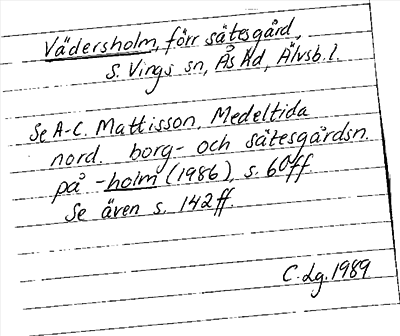 Vädersholm, förr sätesgård,
S. Vings sn, Ås hd, Älvsb. l.
Se A-C. Mattisson, Medeltida
nord. borg- och sätesgårdsn.
på -holm (1986), s. 60ff.
Se även s. 142ff.
C. Lg. 1989